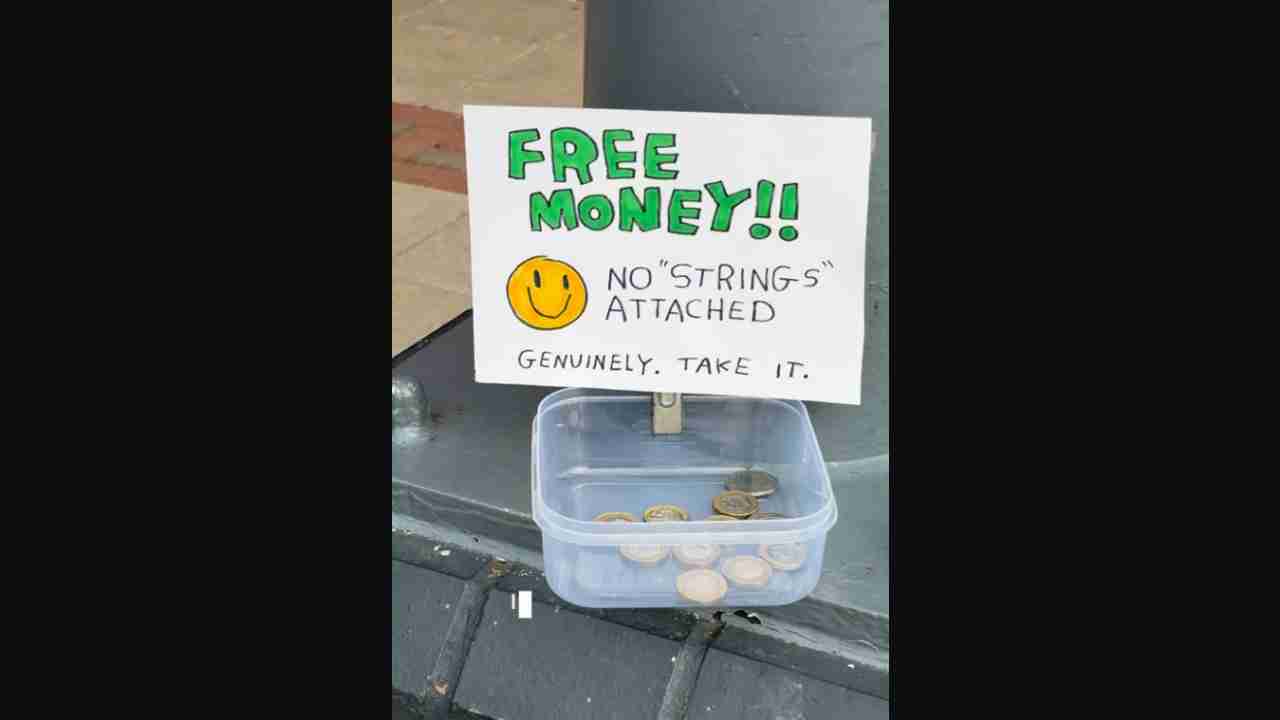 FREE
MONEY!!
NO "STRINGS"
ATTACHED
GENUINELY. TAKE IT.